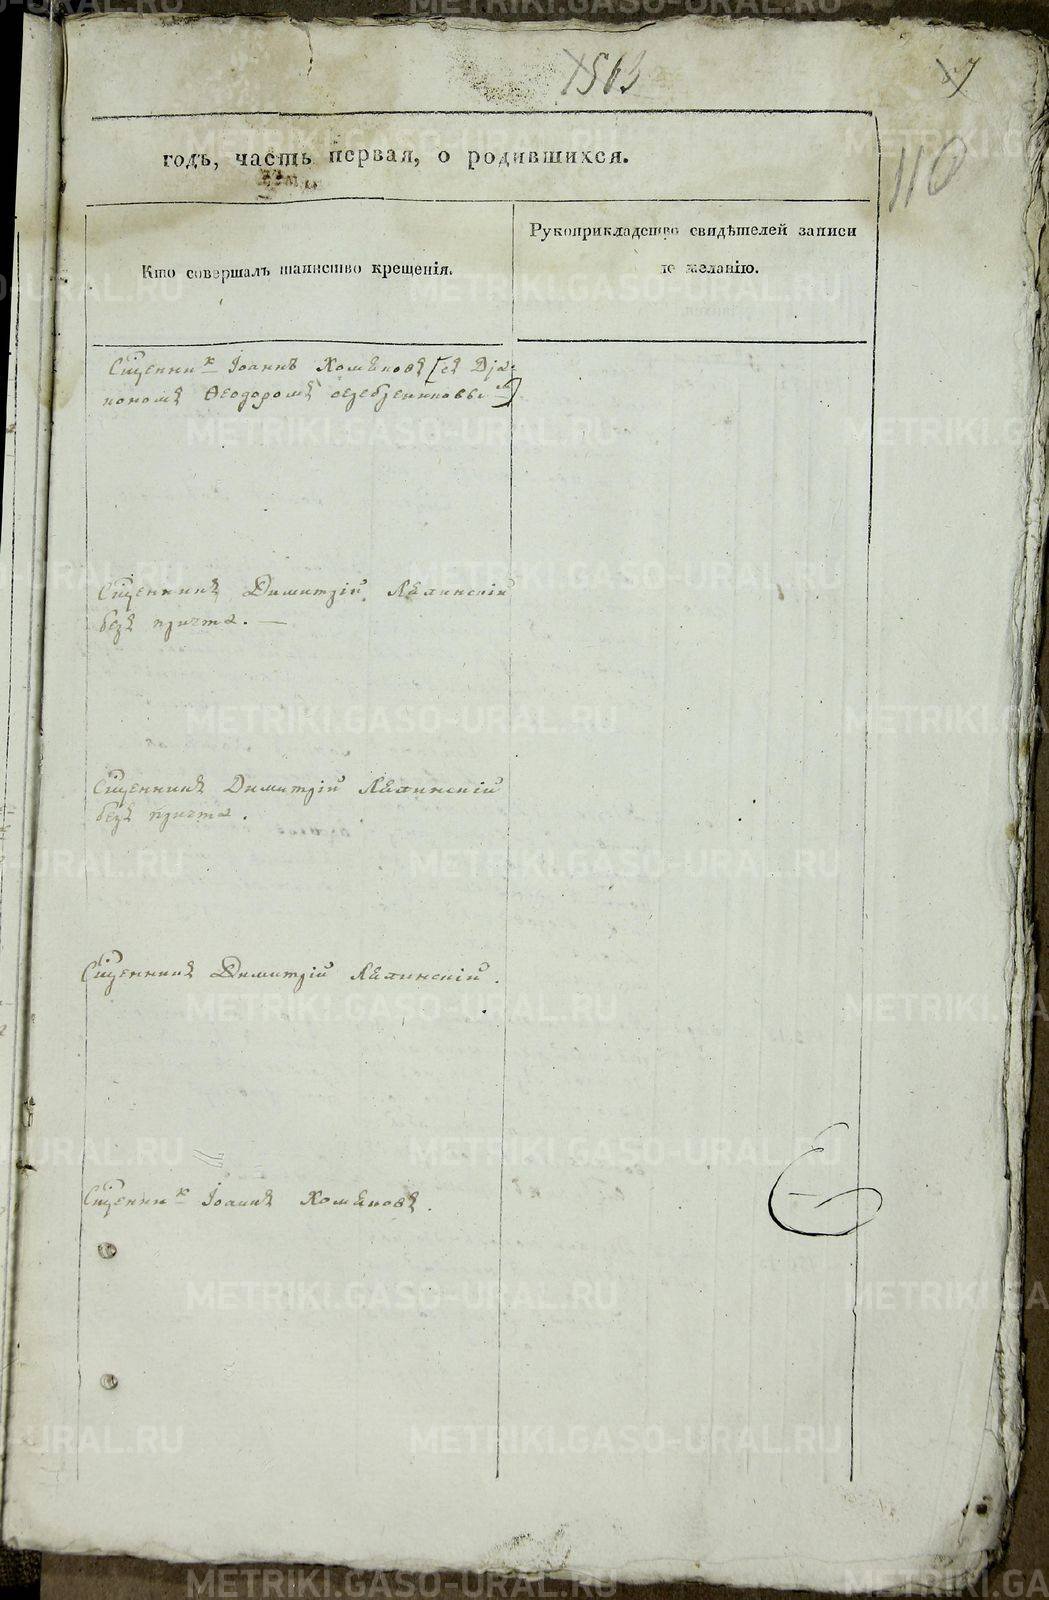 1563
110
годъ, часть первая, о родившихся.
Кто совершалъ таинство крещенія.
Рукоприкладство свидѣтелей записи
по желанію.
Сщенникъ Іоаннъ Хомяковъ [съ Діа-
кономъ Ѳеодоромъ Серебренниковымъ]
Сщенникъ Димитрій
безъ причта. —
Сщенникъ Димитрій
безъ причта.
Сщенникъ Димитрій
Сщенникъ Іоаннъ Хомяковъ.
METRIKI.GASO-URAL.RU